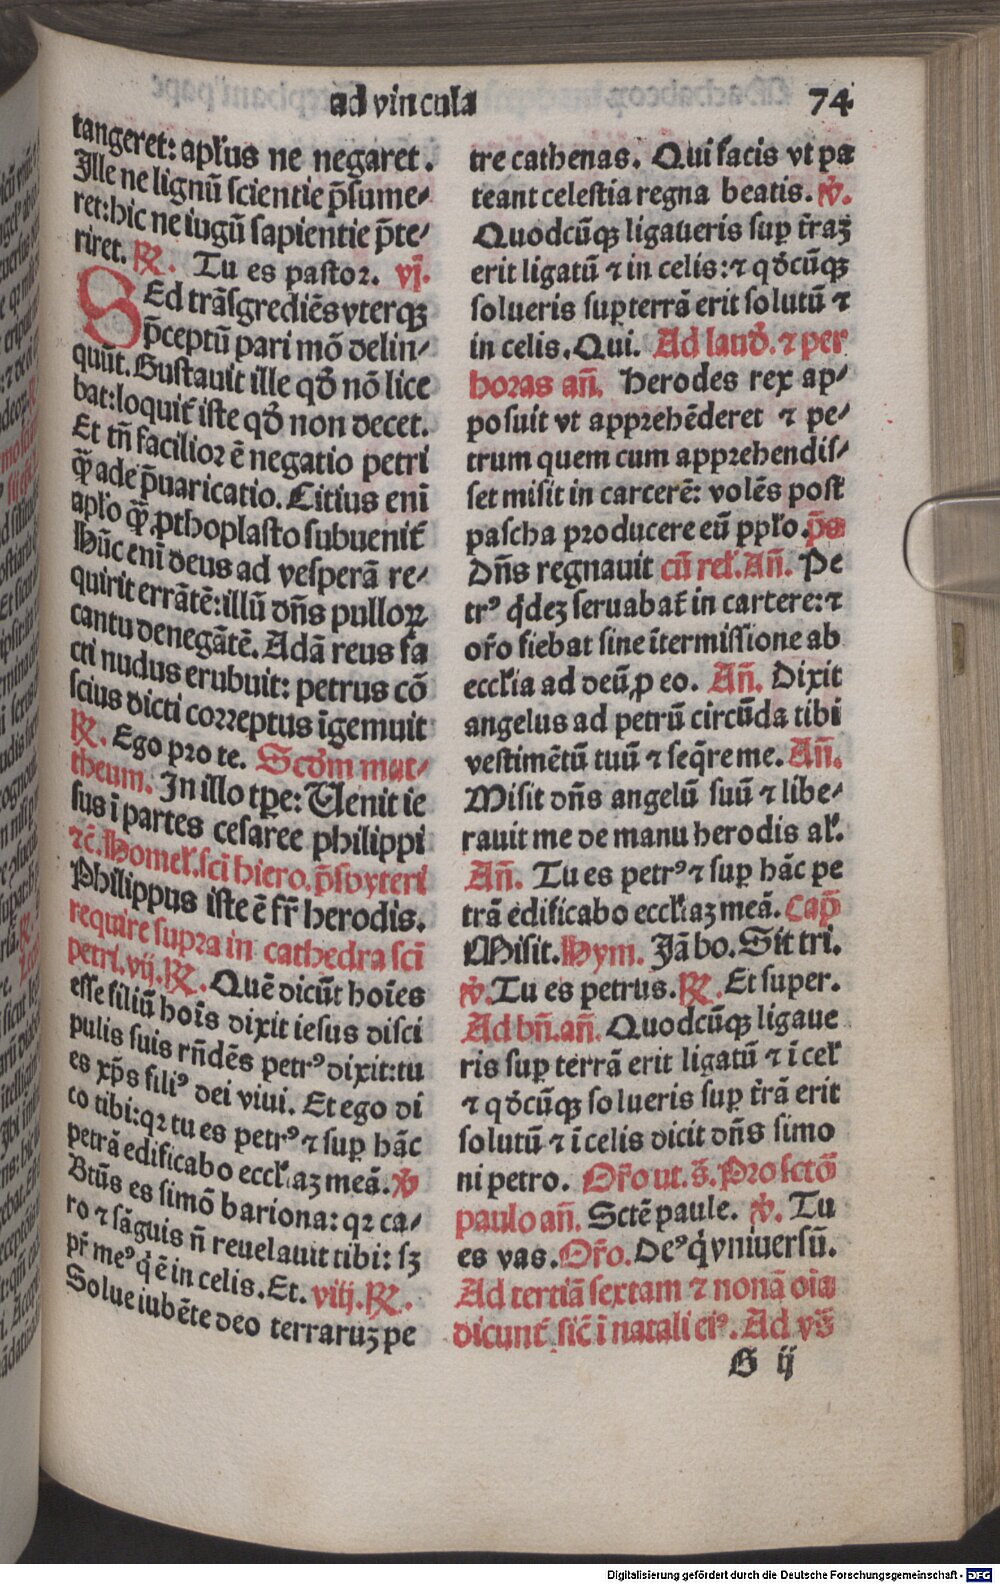 ad vincula
74
tangeret: apl̃us ne negaret.
Ille ne lignũ scientie p̃sume⸗
ret: hic ne iugũ sapientie p̃te⸗
riret. ℟. Tu es pastor. vj.
SEd trãsgrediẽs vterqꝫ
p̃ceptũ pari mõ delin⸗
quũt. Gustauit ille qđ nõ lice
bat: loquit᷑ iste qđ non decet.
Et tñ facilior ẽ negatio petri
q̃ꝫ ade p̃uaricatio. Citius enĩ
apl̃o q̃ꝫ ꝓthoplasto subuenit᷑
Hũc enĩ deus ad vesperã re⸗
quirit errãtẽ: illũ dñs pulloꝝ
cantu denegãtẽ. Adã reus fa
cti nudus erubuit: petrus cõ
scius dicti correptus ĩgemuit
℟. Ego pro te. Scđm mat⸗
theum. In illo tꝑe: Uenit ie
sus ĩ partes cesaree philippi
⁊c̃. Homel̃. sci hiero. p̃sbyteri
Philippus iste ẽ fr̃ herodis.
require supra in cathedra scĩ
petri. vij. ℟. Quẽ dicũt hoĩes
esse filiũ hoĩs dixit iesus disci
pulis suis rñdẽs petrꝰ dixit: tu
es xp̃s filiꝰ dei viui. Et ego di
co tibi: qꝛ tu es petrꝰ ⁊ suꝑ hãc
petrã edificabo eccl̃iaꝫ meã. ℣
Btũs es simõ bariona: qꝛ ca⸗
ro ⁊ sãguis ñ reuelauit tibi: sꝫ
pr̃ meꝰ q̇ ẽ in celis. Et. viij. ℟.
Solue iubẽte deo terraruꝫ pe
tre cathenas. Qui facis vt pa
teant celestia regna beatis. ℣.
Quodcũqꝫ ligaueris suꝑ tr̃aꝫ
erit ligatũ ⁊ in celis: ⁊ qđcũqꝫ
solueris suꝑ terrã erit solutũ ⁊
in celis. Qui. Ad lauđ. ⁊ per
horas añ. Herodes rex ap⸗
posuit vt apprehẽderet ⁊ pe⸗
trum quem cum apprehendis⸗
set misit in carcerẽ: volẽs post
pascha producere eũ ppl̃o. p̃s
Dñs regnauit cũ rel̃. Añ. Pe
trꝰ q̇deꝫ seruabat᷑ in cartere: ⁊
or̃o fiebat sine ĩtermissione ab
eccl̃ia ad deũ ꝓ eo. Añ. Dixit
angelus ad petrũ circũda tibi
vestimẽtũ tuũ ⁊ seq̃re me. Añ.
Misit dñs angelũ suũ ⁊ libe⸗
rauit me de manu herodis al̃.
Añ. Tu es petrꝰ ⁊ suꝑ hãc pe
trã edificabo eccl̃iaꝫ meã. Cap̃
Misit. Hym. Jã bo. Sit tri.
℣. Tu es petrus. ℟. Et super.
Ad bñ. añ. Quodcũqꝫ ligaue
ris suꝑ terrã erit ligatũ ⁊ ĩ cel̃
⁊ qđcũqꝫ solueris suꝑ tr̃ã erit
solutũ ⁊ ĩ celis dicit dñs simo
ni petro. Or̃o ut. s̃. Pro sctõ
paulo añ. Sctẽ paule. ℣. Tu
es vas. Or̃o. Deꝰ q̇ vniuersũ.
Ad tertiã sextam ⁊ nonã oĩa
dicunt᷑ sic̃ ĩ natali eiꝰ. Ad vs̃
G ij
Digitalisierung gefördert durch die Deutsche Forschungsgemeinschaft - DFG